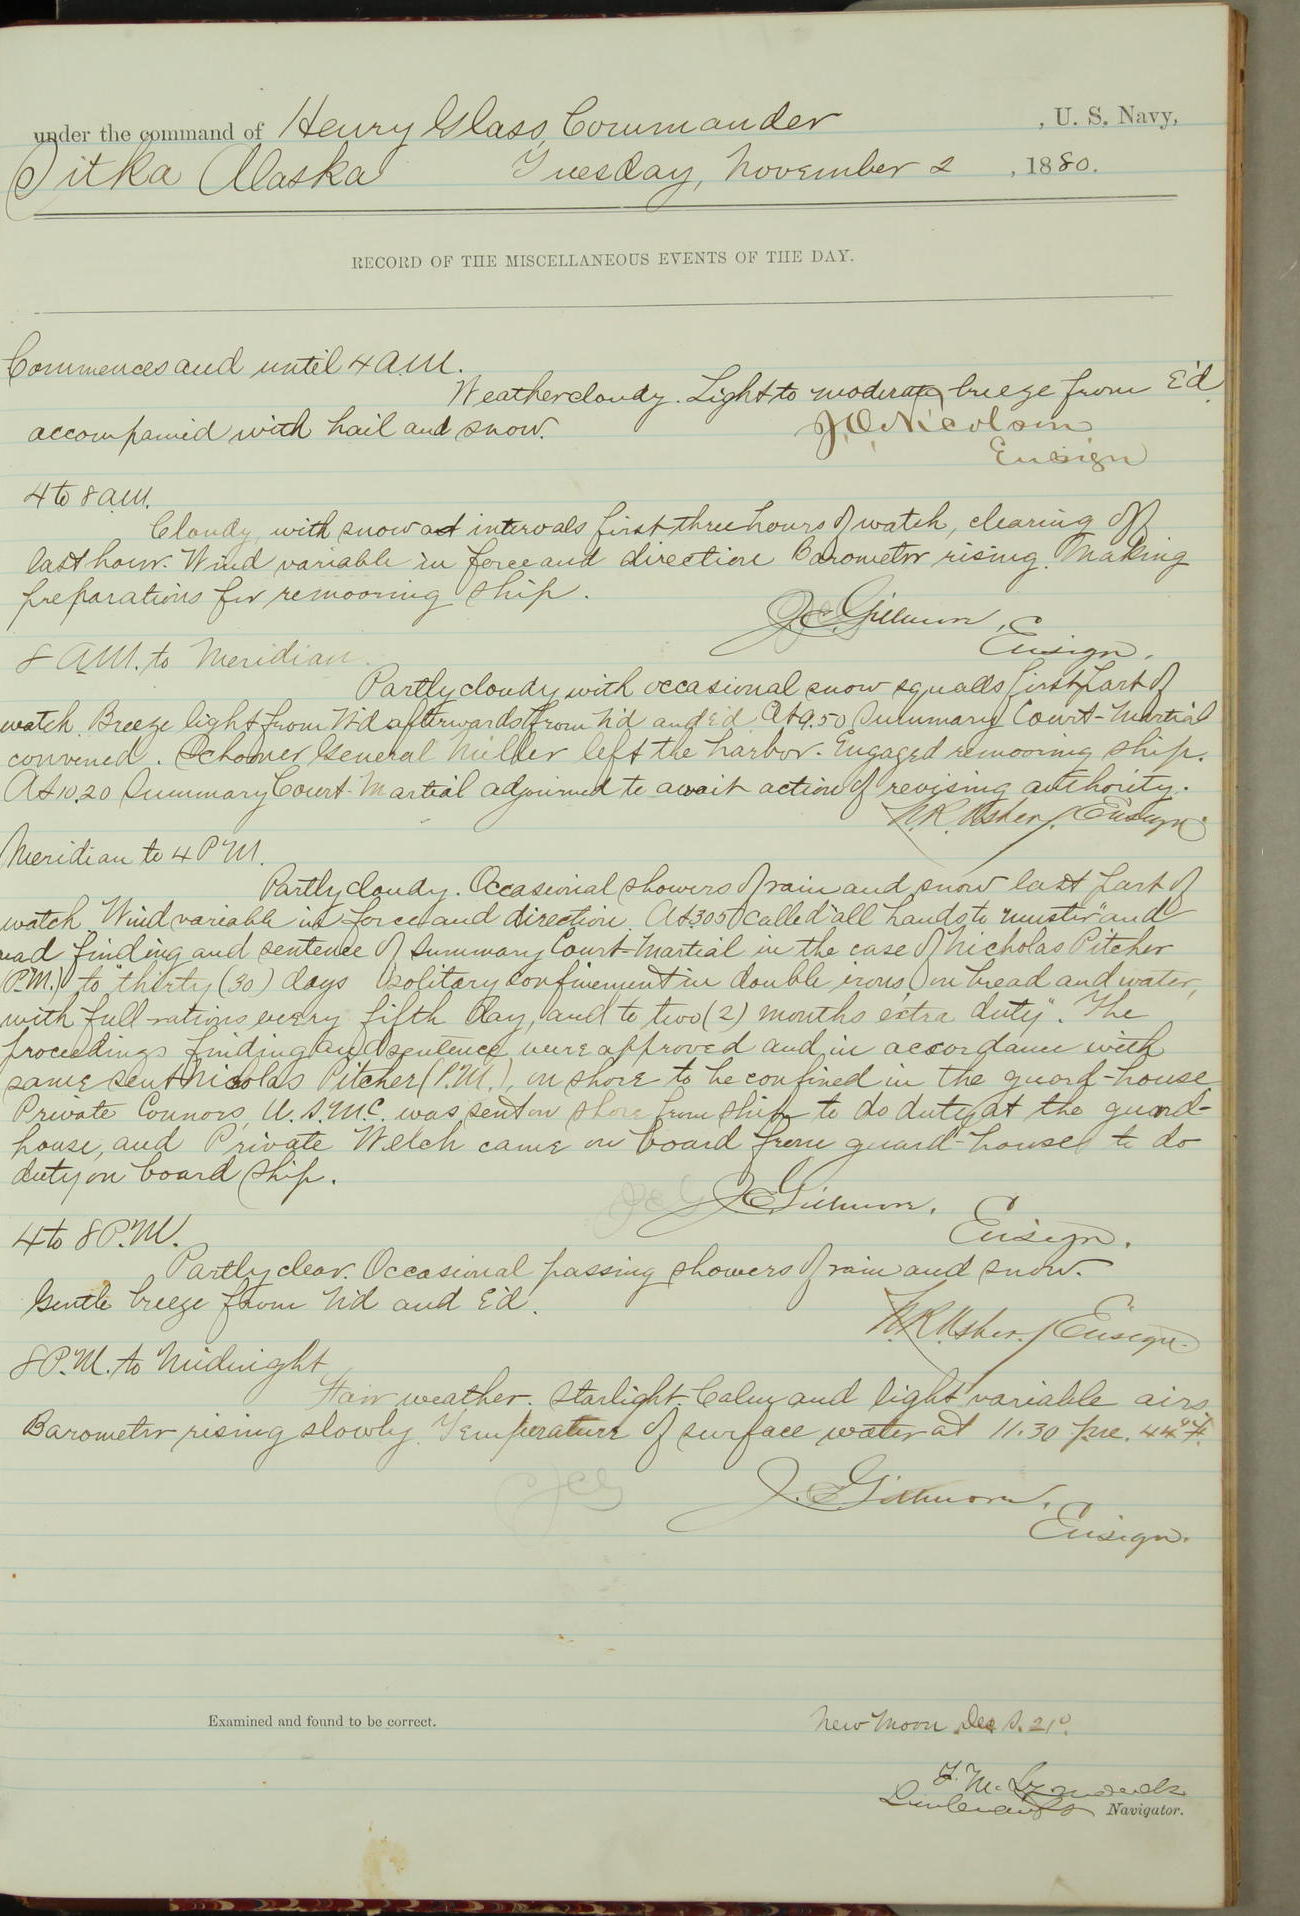 under the command of Henry Glass, Commander , U. S. Navy,
Sitka Alaska Tuesday, November 2 , 1880.
RECORD OF THE MISCELLANEOUS EVENTS OF THE DAY.
Commences and until 4 A.M.
Weather cloudy. Light to moderate breeze from E'd.
accompanied with hail and snow.
Ensign
4 to 8 A.M.
Cloudy, with snow at intervals first three hours of watch, clearing off
last hour. Wind variable in force and direction Barometer rising. Making
preparations for remooring ship.
Ensign.
8 A.M. to Meridian.
Partly cloudy with occasional snow squalls first part of
watch. Breeze light from N'd afterwards from N'd and E'd. At 9.50 Summary Court-Martial
convened. Schooner General Miller left the harbor. Engaged remooring ship.
At 10.20 Summary Court-Martial adjourned to await action of revising authority.
W.R. Usher, Ensign.
Meridian to 4 P.M.
Partly cloudy. Occasional showers of rain and snow last part of
watch. Wind variable in force and direction. At 3.05 called "all hands to muster" and
read finding and sentence of Summary Court-Martial in the case of Nicholas Pitcher
(P.M.) to "thirty (30) days solitary confinement in double irons, on bread and water,
with full rations every fifth day, and to two (2) months extra duty". The
proceedings finding and sentence were approved and in accordance with
same sent Nicolas Pitcher (P.M.), on shore to be confined in the guard-house.
Private Connors, U.S.M.C. was sent on shore from ship to do duty at the guard-
house, and Private Welch came on board from guard-house to do
duty on board ship.
Ensign.
4 to 8 P.M.
Partly clear. Occasional passing showers of rain and snow.
Gentle breeze from N'd and E'd.
W.R. Usher. Ensign.
8 P.M. to Midnight
Fair weather. Starlight. Calm and light variable airs.
Barometer rising slowly. Temperature of surface water at 11.30 p.m.
Ensign.
Examined and found to be correct.
New Moon
Lieutenant Navigator.